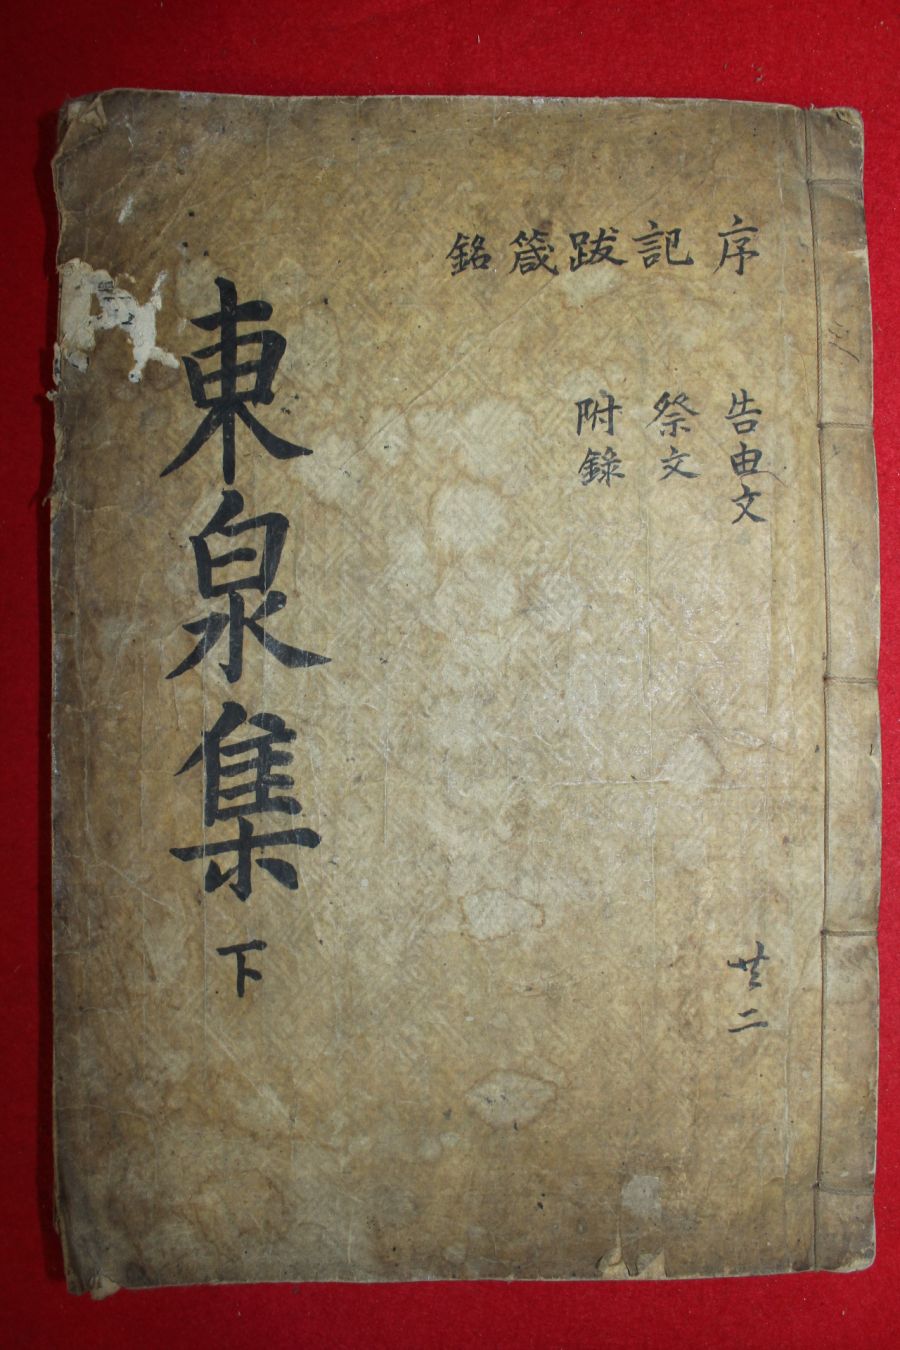 序記跋箴銘
告由文
祭文
附錄
共二
東泉集下